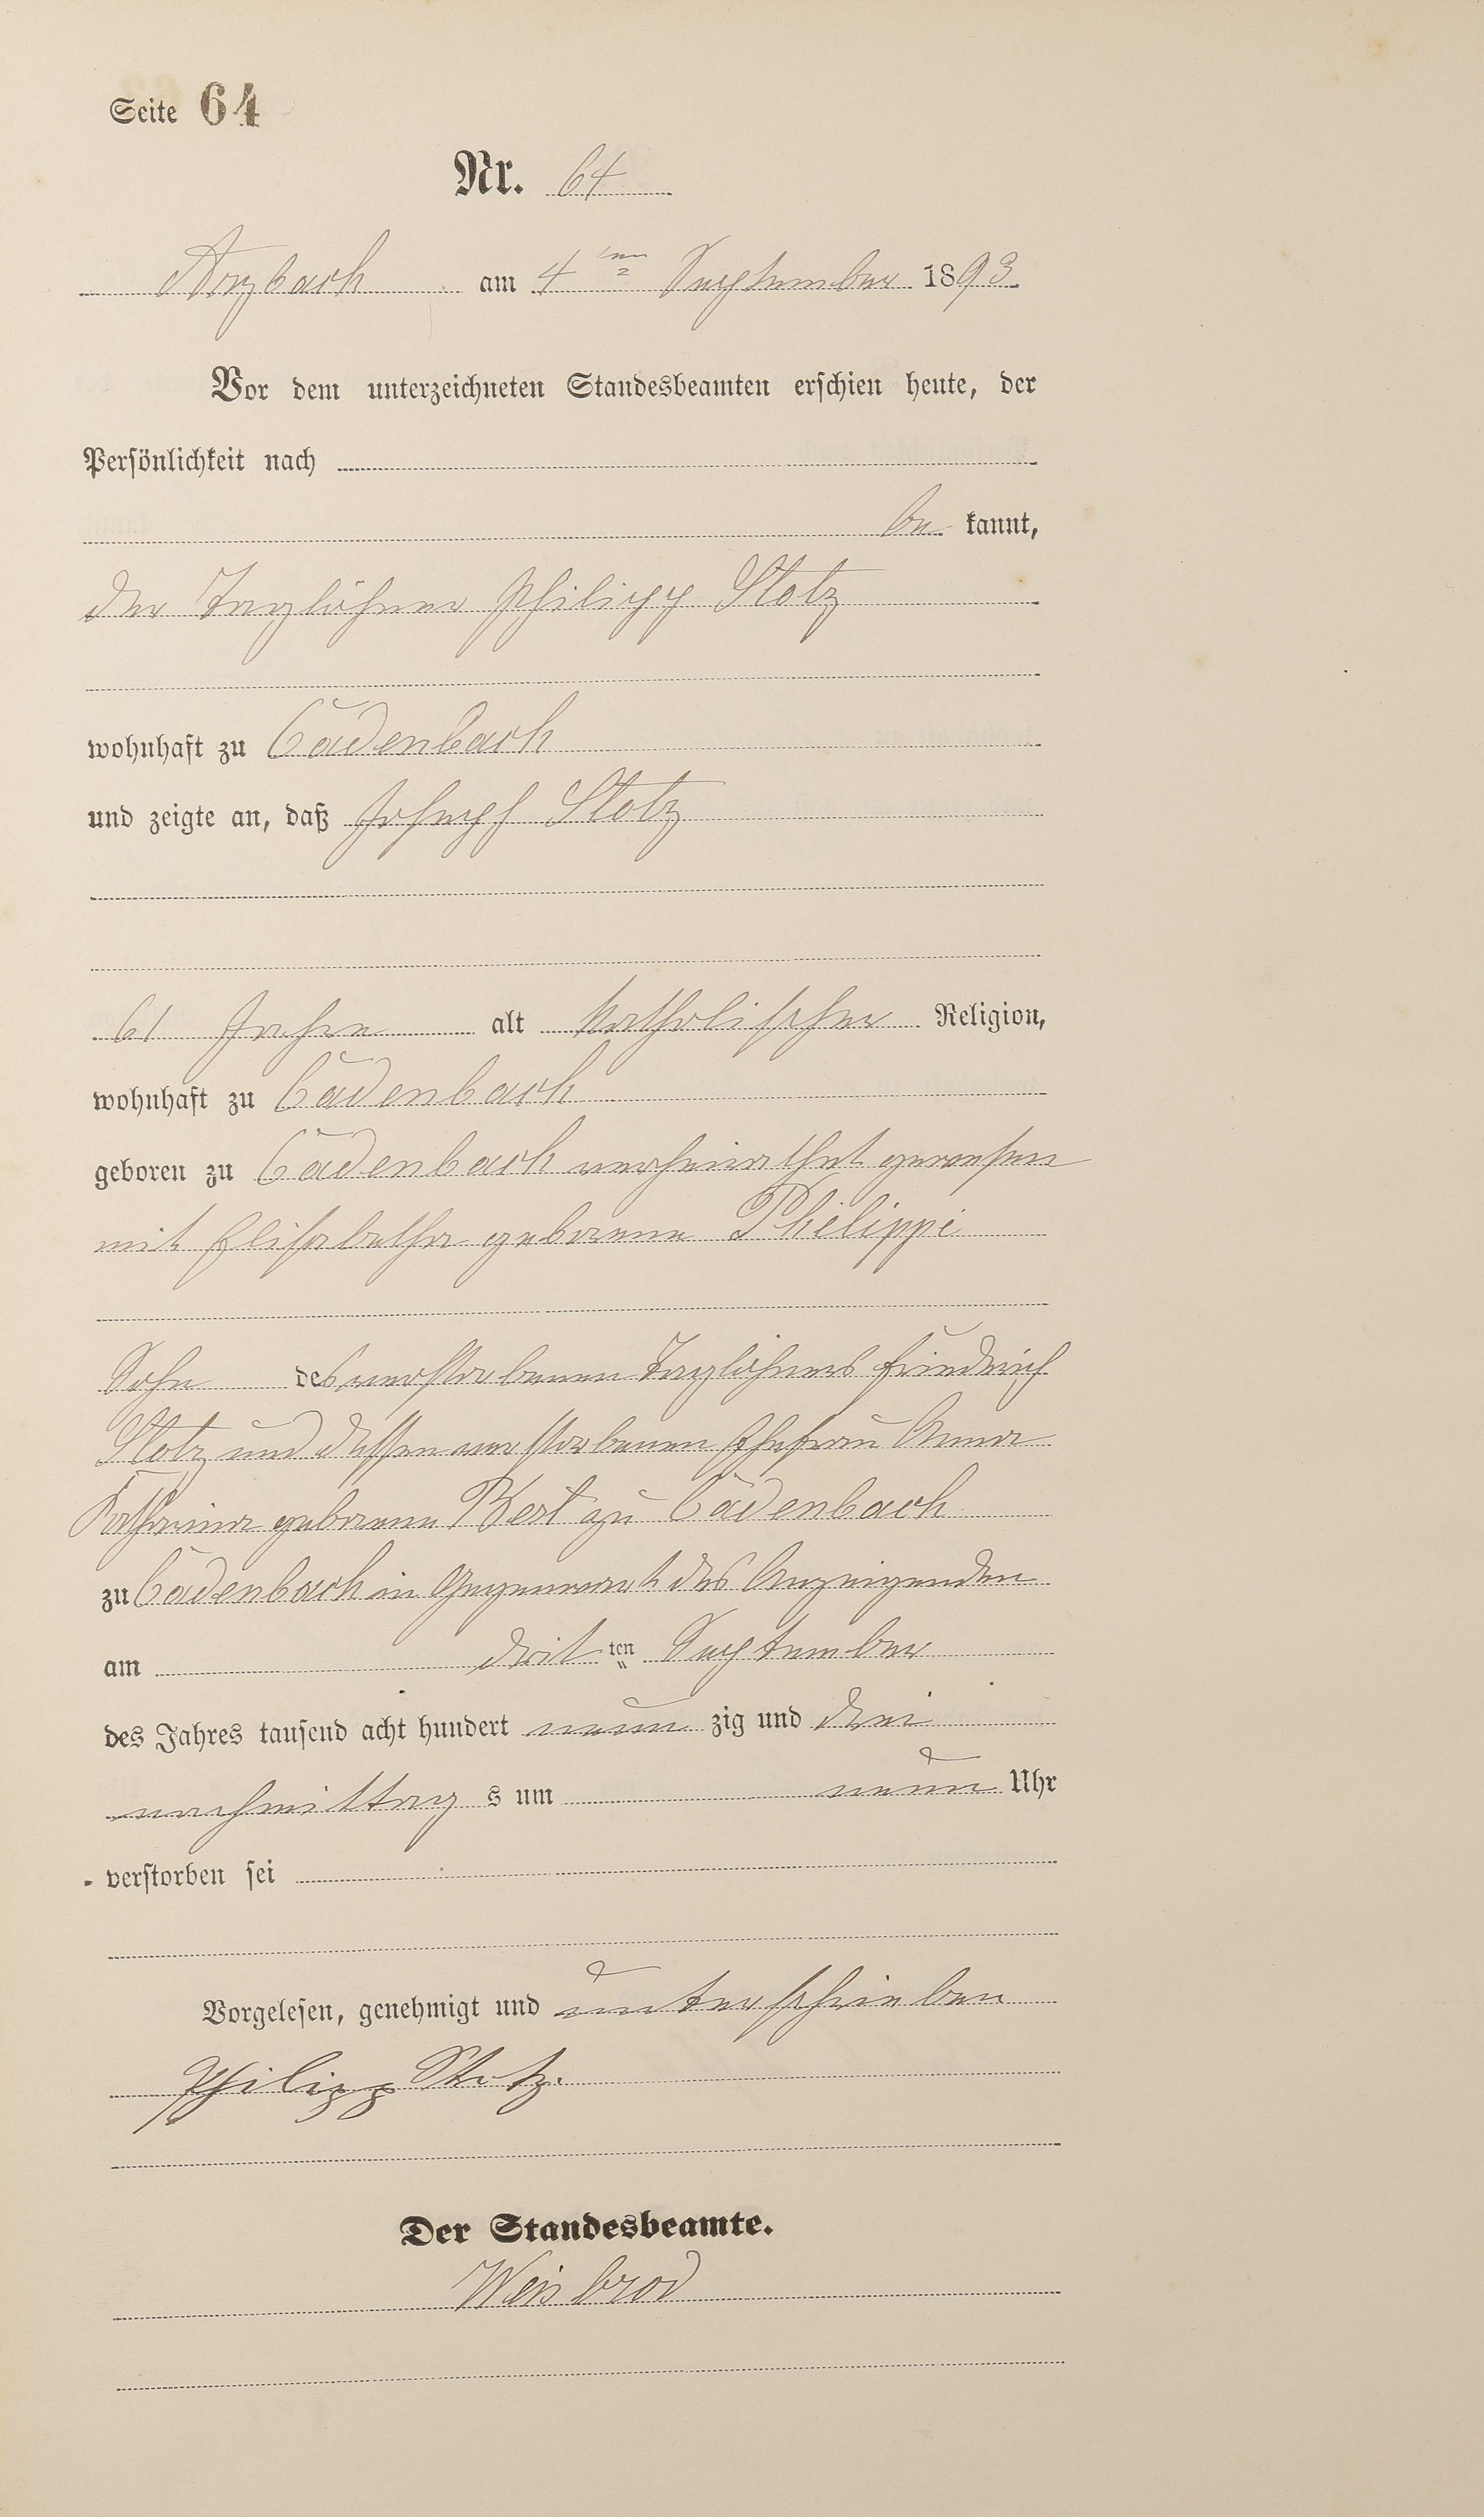 Seite 64
Nr. 64
Arzbach am 4ten September 1893.
Vor dem unterzeichneten Standesbeamten erschien heute, der
Persönlichkeit nach
be kannt,
der Taglöhner Philipp Stotz
wohnhaft zu Cadenbach
und zeigte an, daß Joseph Stotz
61 Jahre alt katholischer Religion,
wohnhaft zu Cadenbach
geboren zu Cadenbach verheirathet gewesen
mit Elisabetha geborene Philippi
Sohn des verstorbenen Taglöhners Friedrich
Stotz und dessen verstorbenen Ehefrau Anna
Katharina geborene zu Cadenbach
zu Cadenbach in Gegenwart des Anzeigenden
am drit ten September
des Jahres tausend acht hundert neun zig und drei
nachmittag s um neun Uhr
verstorben sei
Vorgelesen, genehmigt und unterschrieben
Philipp Stotz.
Der Standesbeamte.
Weisbrod